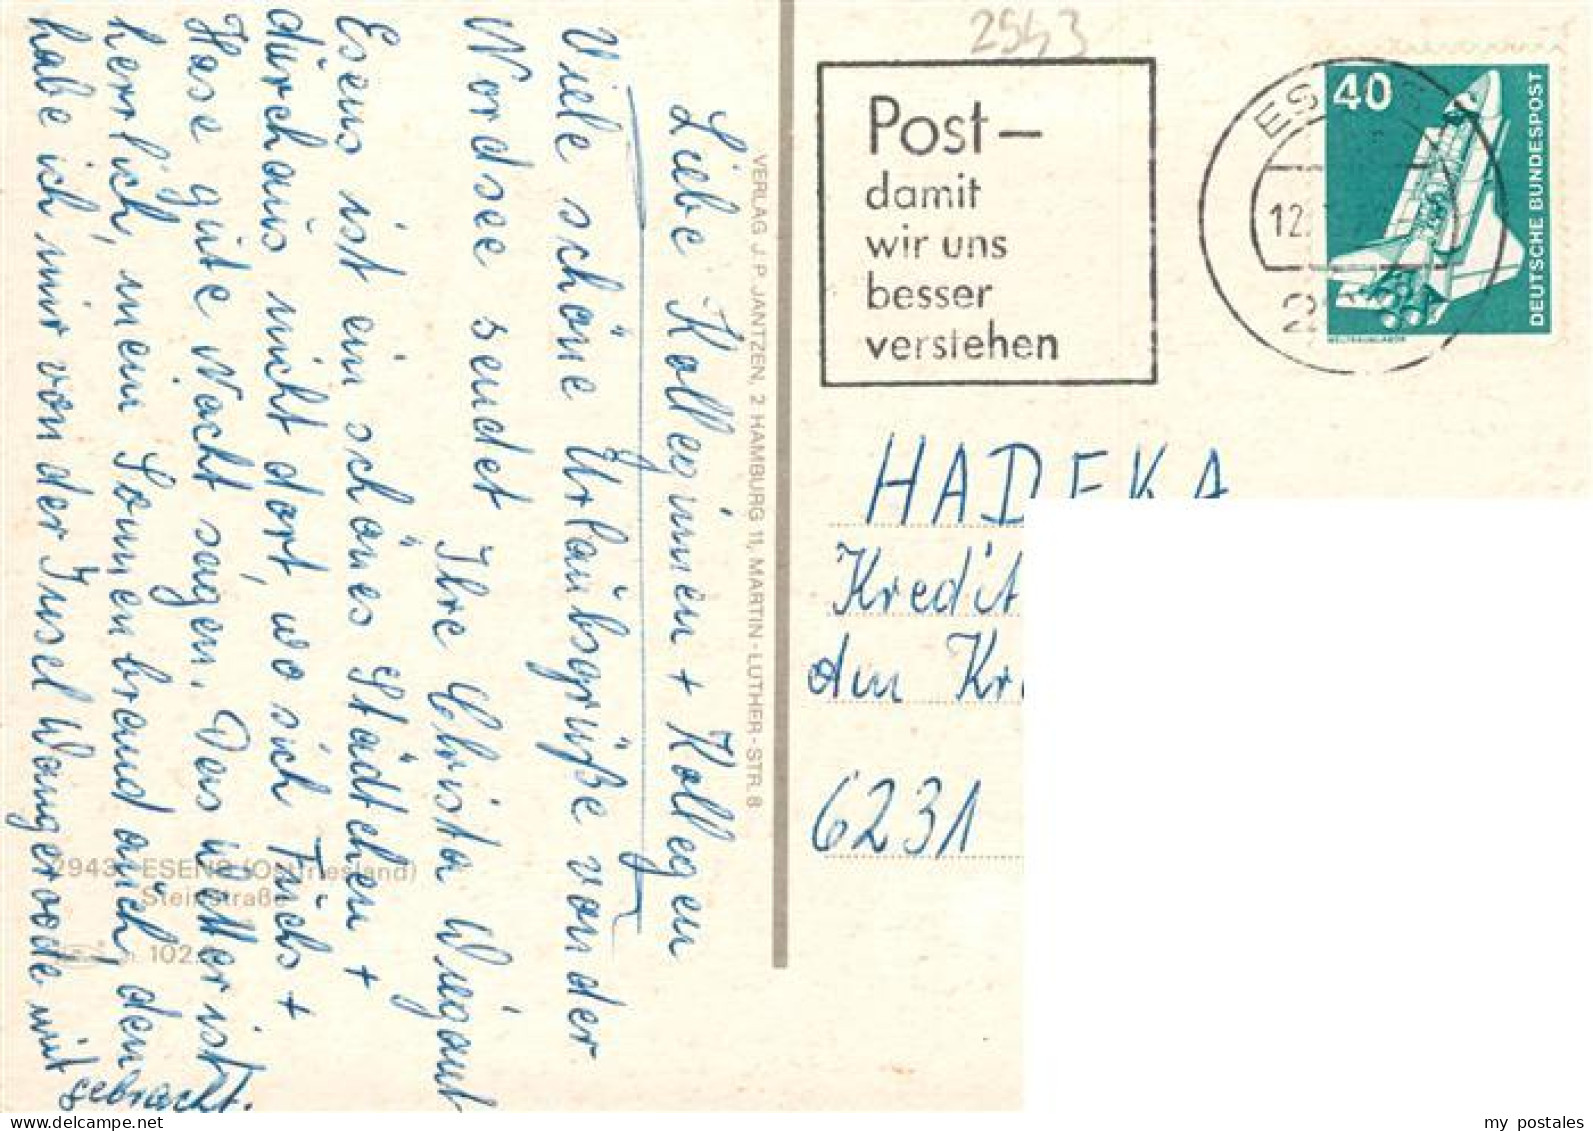 Liebe Kolleginnen + Kollegen
Viele schöne Urlaubsgrüße von der
Nordsee sendet
Ihre Christa Wiegant
Esens ist ein schönes Städtchen +
durchaus nicht dort, wo sich Fuchs +
Hase gute Nacht sagen. Das Wetter ist
herrlich, mein Sonnenbrand auch, den
habe ich mir von der Insel Wangerooge mit
gebracht.
VERLAG J. P. JANTZEN, 2 HAMBURG 11, MARTIN-LUTHER-STR. 8
2943 ESENS (Ostfriesland)
Steinstraße
102
2943
Post–
damit
wir uns
besser
verstehen
ES
12.
40
DEUTSCHE BUNDESPOST
WELTRAUMLABOR
HADEKA
Kredit
den Kr
6231
my postales